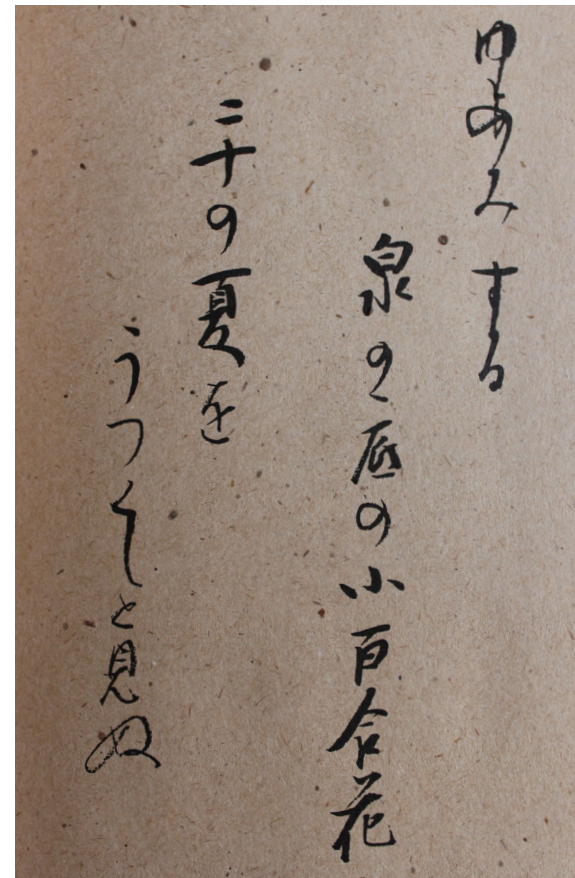 ゆあみする
泉の底の小百合花
二十の夏を
うつくしと見ぬ